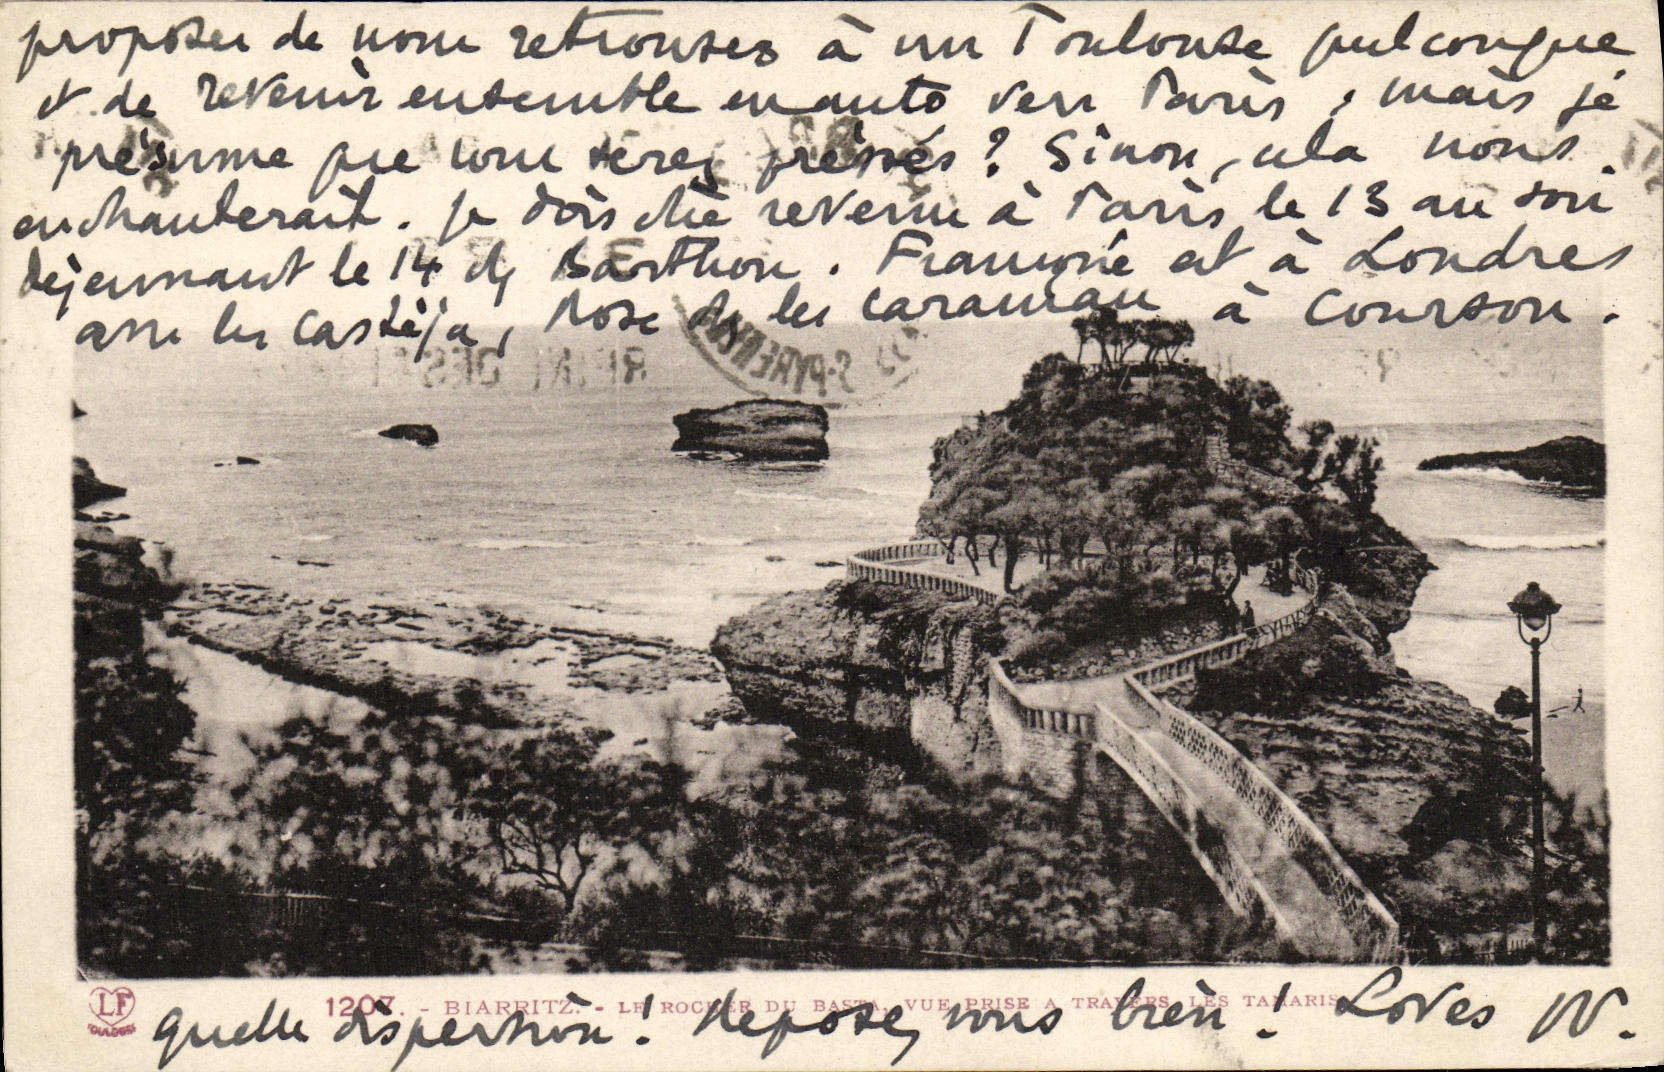 proposer de nous retrouver à un Toulouse quelconque
et de revenir ensemble en auto vers Paris ; mais je
présume que vous serez pressés ? Sinon, cela nous
enchanterait. Je dois être revenu à Paris le 13 au soir
déjeunant le 14 ch. Barthou. Françoise est à Londres
avec les Castéja, Rose ch. les Caraman à Courson.
S-PYRENEES
1207. - BIARRITZ. - LE ROCHER DU BASTA, VUE PRISE A TRAVERS LES TAMARIS
LF
TOULOUSE
quelle dispersion ! Reposez vous bien ! Loves W.